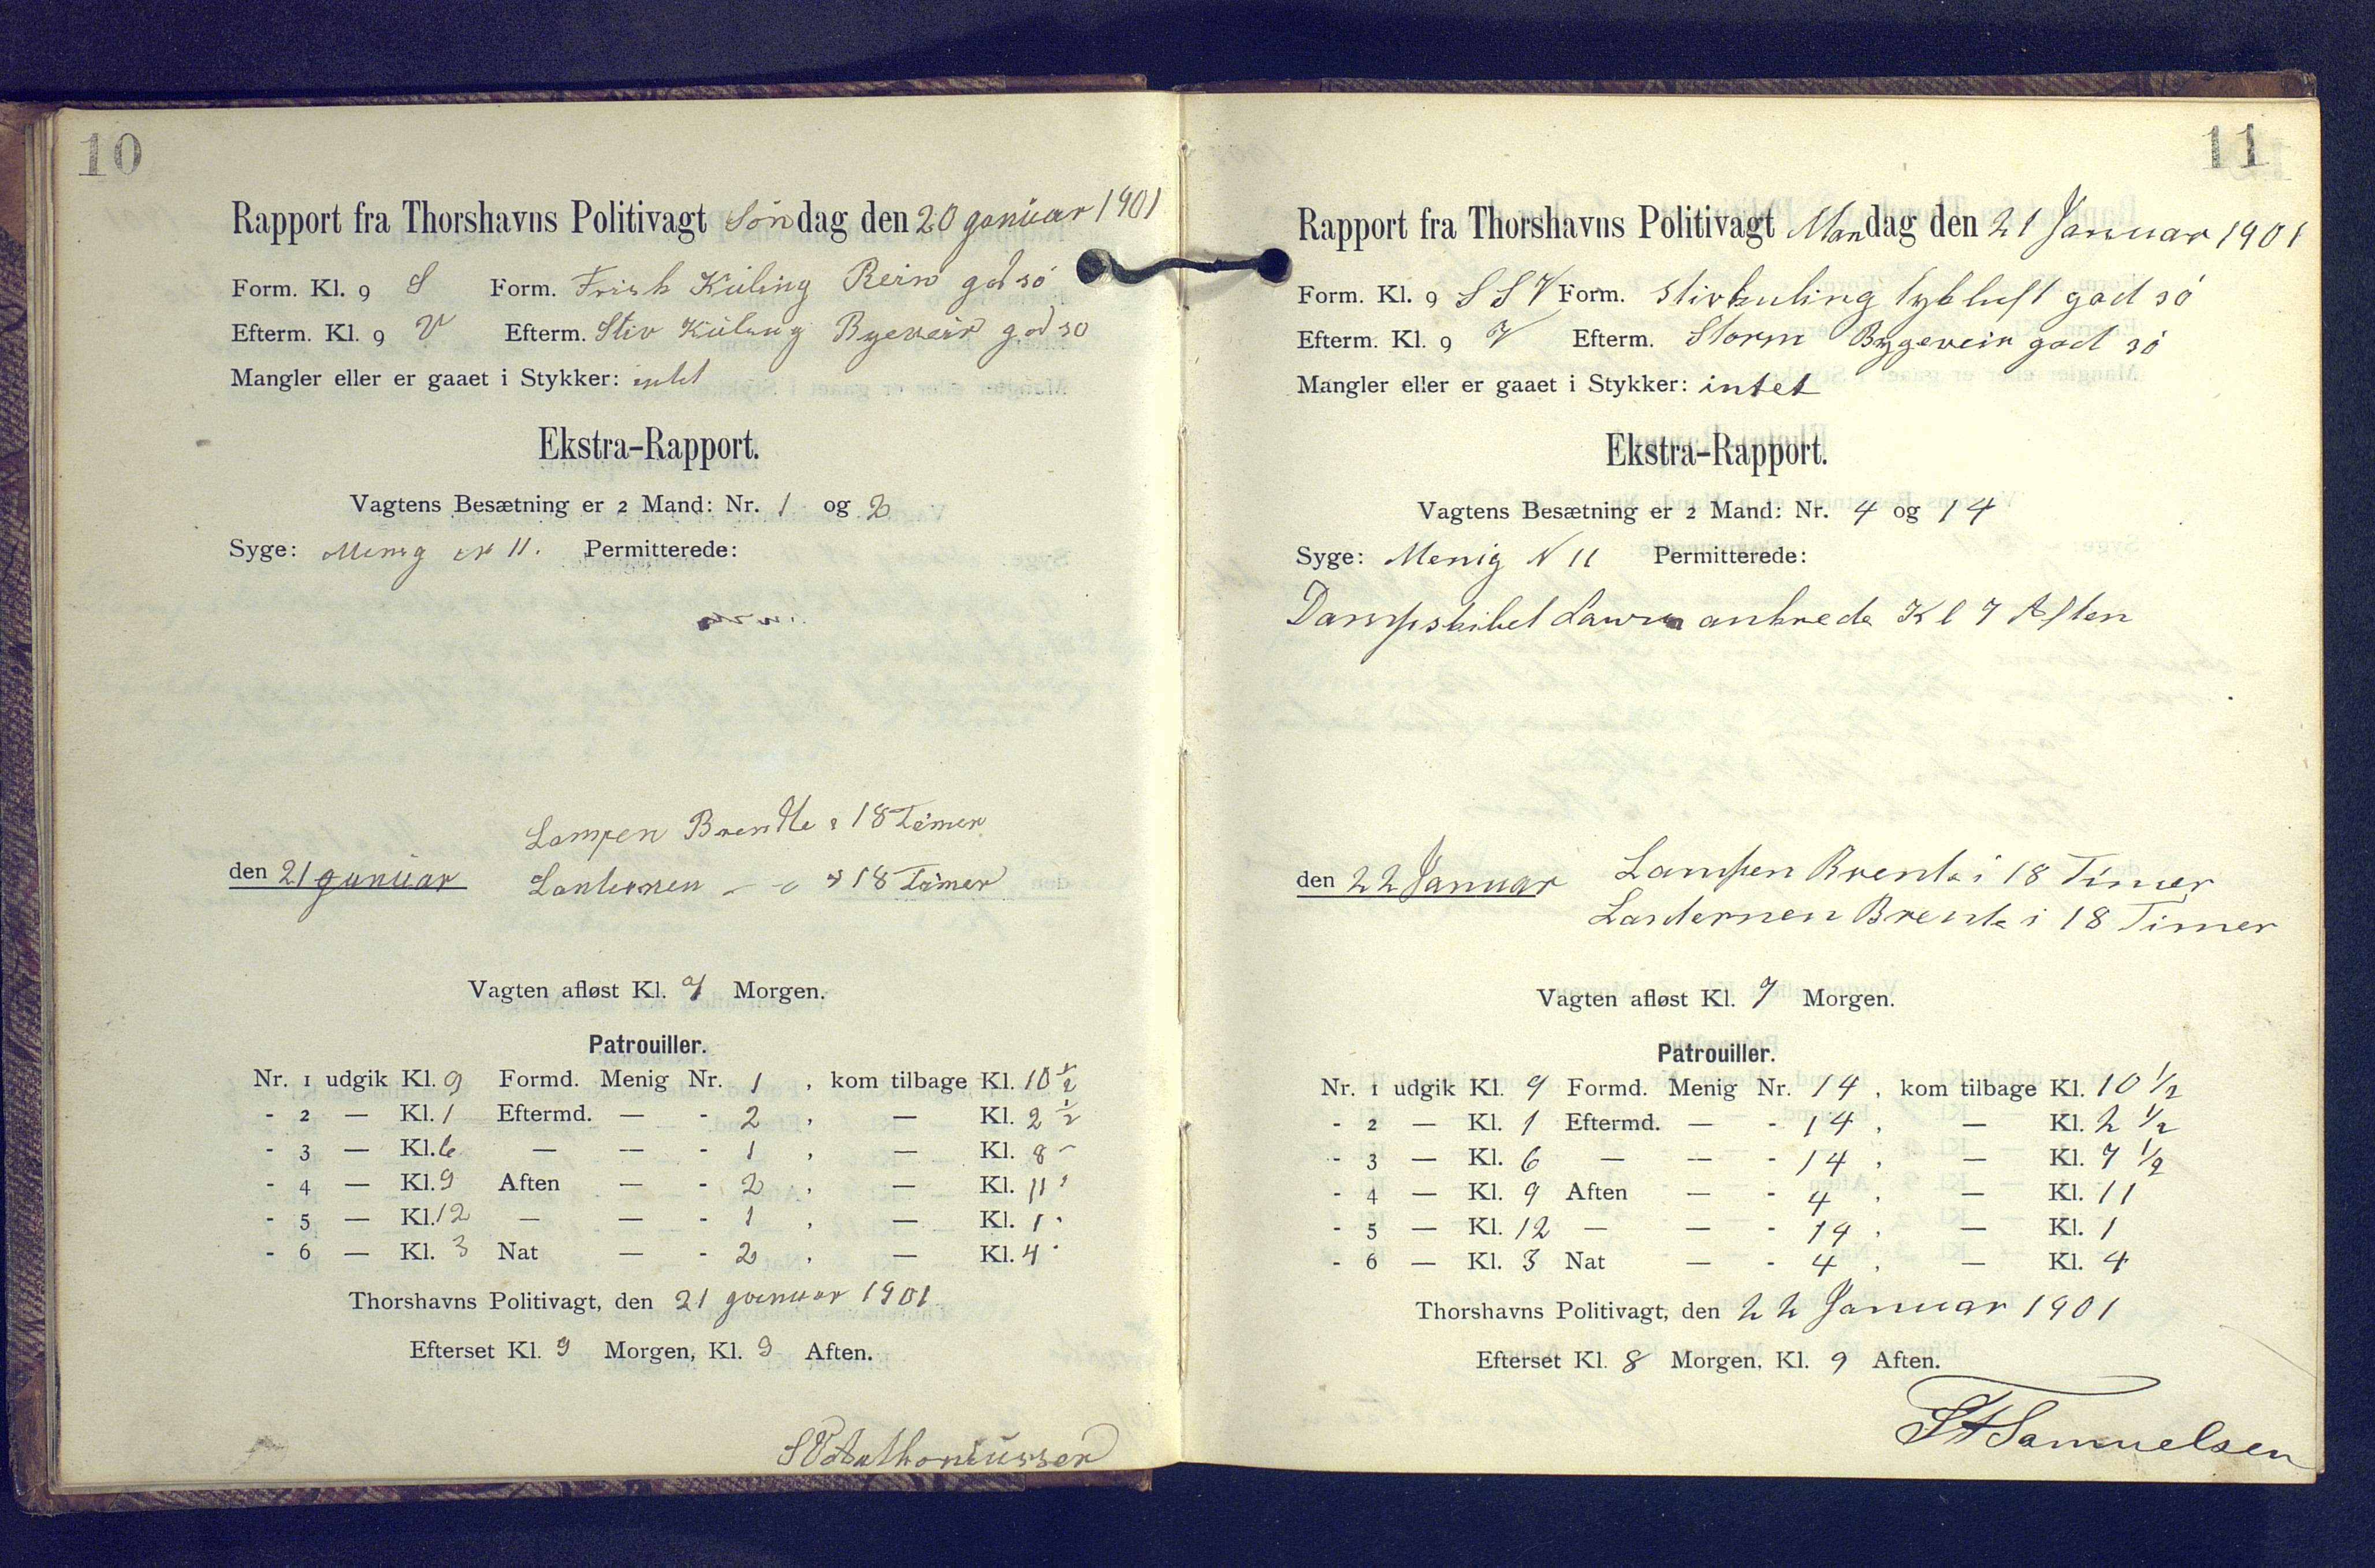 10
Rapport fra Thorshavns Politivagt Søndag den 20 januar 1901
Form. Kl. 9 S Form. Frisk Küling Rein god sö
Efterm. Kl. 9 V Efterm. Stiv Küling Bygeveir god so
Mangler eller er gaaet i Stykker: intet
Ekstra-Rapport.
Vagtens Besætning er 2 Mand: Nr. 1 og 2
Syge: Menig N 11. Permitterede:
Lampen Brendte i 18 Timer
den 21 januar Lanternen - " - 18 Timer
Vagten afløst Kl. 9 Morgen.
Patrouiller.
Nr. 1 udgik Kl. 9 Formd. Menig Nr. 1 , kom tilbage Kl. 10 ½
- 2 — Kl. 1 Eftermd. — - 2 , — Kl. 2 ½
- 3 — Kl. 6 — — - 1 , — Kl. 8 -
- 4 — Kl. 9 Aften — - 2 , — Kl. 11 "
- 5 — Kl. 12 — — - 1 , — Kl. 1 "
- 6 — Kl. 3 Nat — - 2 , — Kl. 4 "
Thorshavns Politivagt, den 21 januar 1901
Efterset Kl. 9 Morgen, Kl. 9 Aften.
Anthoniussen
11
Rapport fra Thorshavns Politivagt Mandag den 21 Januar 1901
Form. Kl. 9 S S V Form. Stivkuling tykluft god sö
Efterm. Kl. 9 V Efterm. Storm Bygeveir god sö
Mangler eller er gaaet i Stykker: intet
Ekstra-Rapport.
Vagtens Besætning er 2 Mand: Nr. 4 og 14
Syge: Menig N 11 Permitterede:
Dampskibet Laura ankrede Kl 7 Aften
den 22 Januar Lampen Brente i 18 Timer
Lanternen Brente i 18 Timer
Vagten afløst Kl. 9 Morgen.
Patrouiller.
Nr. 1 udgik Kl. 9 Formd. Menig Nr. 14 , kom tilbage Kl. 10 ½
- 2 — Kl. 1 Eftermd. — - 14 , — Kl. 2 ½
- 3 — Kl. 6 — — - 14 , — Kl. 7 ½
- 4 — Kl. 9 Aften — - 4 , — Kl. 11
- 5 — Kl. 12 — — - 14 , — Kl. 1
- 6 — Kl. 3 Nat — - 4 , — Kl. 4
Thorshavns Politivagt, den 22 Januar 1901
Efterset Kl. 8 Morgen, Kl. 9 Aften.
Samuelsen